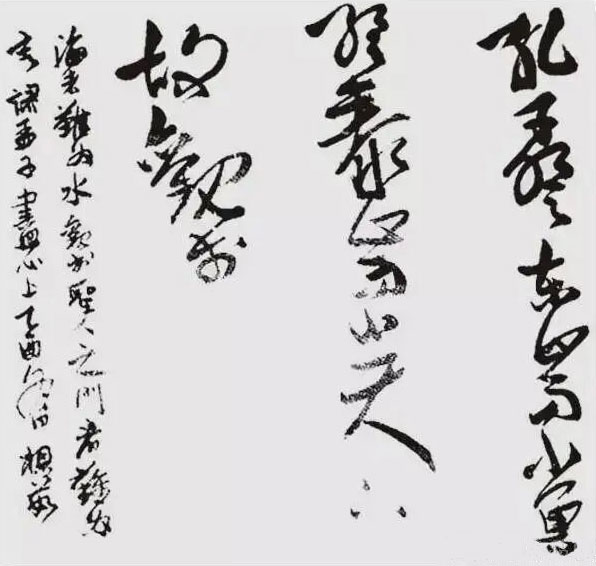 孔子登東山而小魯
登泰山而小天下
故觀於
海者難為水於聖人之門者難為
言孟子盡心上乙酉年